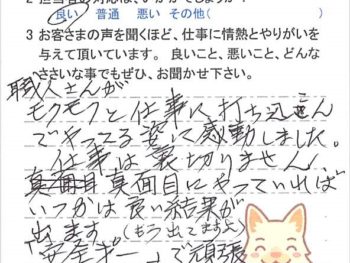 良い 普通 悪い その他(
3 お客さまの声を聞くほど、仕事に情熱とやりがいを
与えて頂いています。良いこと、悪いこと、どんな
ささいな事でもぜひ、お聞かせ下さい。
職人さんが
モクモクと仕事に打ち込んで
やってる姿に感動しました。
仕事は裏切りません
真面目 真面目にやっていれば
いつかは良い結果が
出ます。(もう出てますよ)
「安全第一」で頑張